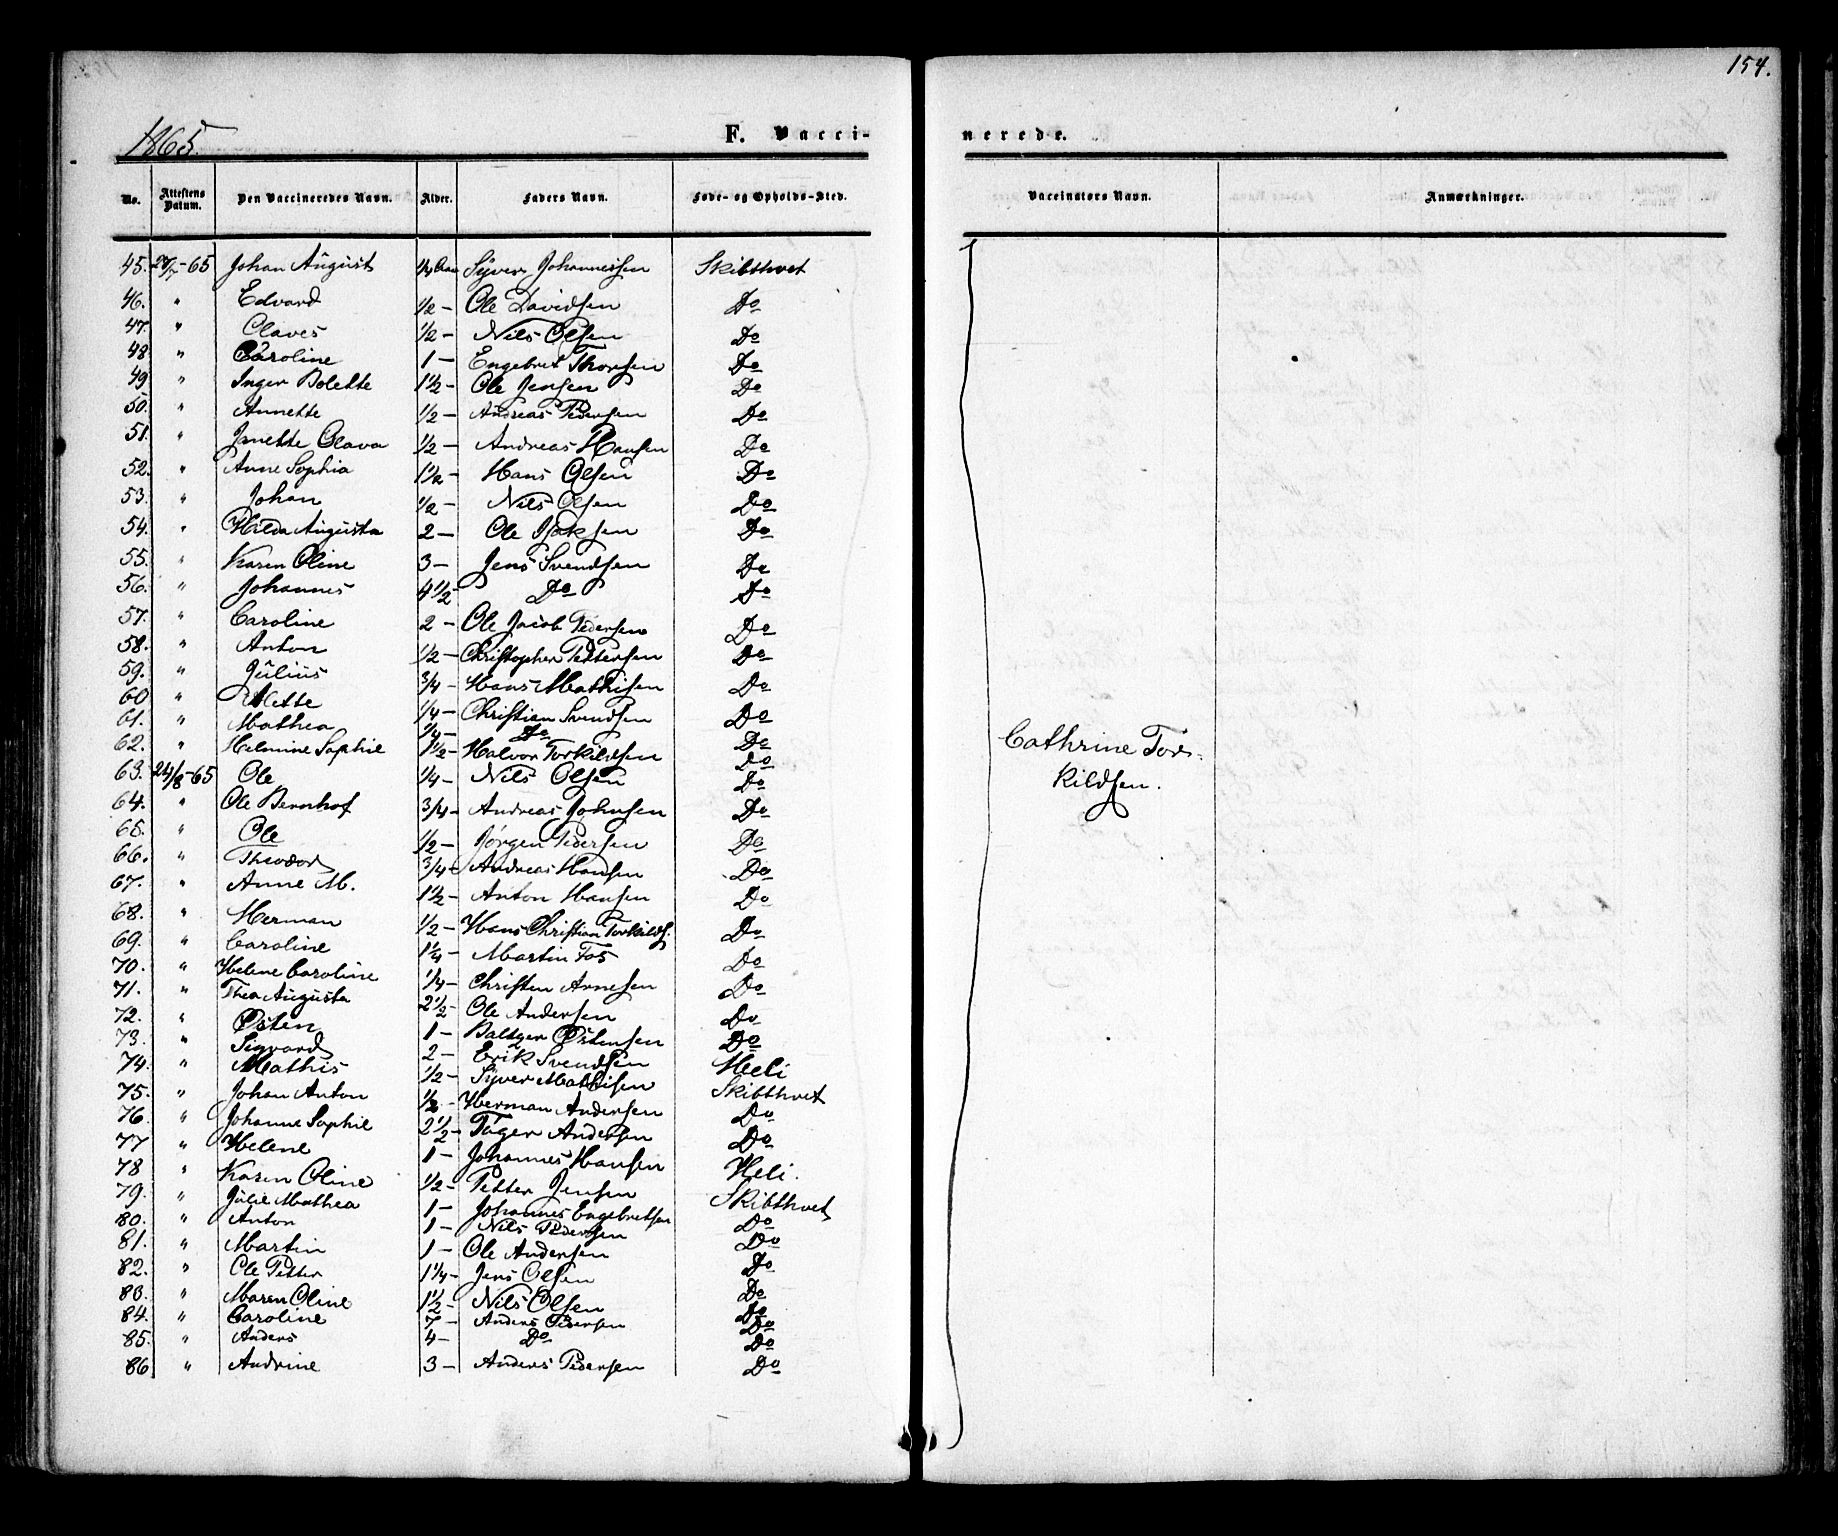 154.
1865.
F. Vacci-
nerede.
No. Attestens Datum. Den Vaccineredes Navn. Alder. Faders Navn. Føde- og Opholds-Sted. Vaccinators Navn. Anmærkninger.
45. 27/7-65 Johan August 1/4 Aar Syver Johannessen Skibthvet
46. " Edvard 1/2 - Ole Davidsen Do
47. " Claves 1/2 - Nils Olsen Do
48 " Caroline 1 - Engebret Thorsen Do
49 " Inger Bolette 1 1/2 - Ole Jensen Do
50. " Annette 1/2 - Andreas Pedersen Do
51. " Janette Olava 1/2 - Andreas Hansen Do
52. " Anne Sophia 1 1/2 - Hans Olsen Do
53. " Johan 1/2 - Nils Olsen Do
54. " Hilda Augusta 2 - Ole Isaksen Do
55. " Karen Oline 3 - Jens Svendsen Do
56. " Johannes 4 1/2 - Do Do
57. " Caroline 2 - Ole Jacob Pedersen Do
58. " Anton 1/2 - Christopher Pettersen Do
59. " Julius 3/4 - Hans Mathisen Do
60 " Alette 1/4 - Christian Svendsen Do
61. " Mathea 1/4 - Do Do
62. " Helmine Sophie 1 1/2 - Halvor Torkildsen Do
63. 24/8-65 Ole 1/4 - Nils Olsen Do
64. " Ole Bernhof 3/4 - Andreas Johnsen Do
65. " Ole 1/2 - Jørgen Pedersen Do
66. " Theodor 3/4 - Andreas Hansen Do
67. " Anne M. 1 1/2 - Anton Hansen Do
68. " Herman 1/2 - Hans Christian Torkilds. Do
69. " Caroline 1 1/4 - Martin Fos Do
70. " Helene Caroline 1/4 - Christen Arnesen Do
71. " Thea Augusta 2 1/2 - Ole Andersen Do
72. " Østen 1 - Baltzer Østensen Do
73. " Sigvard 2 - Erik Svendsen Heli
74. " Mathis 1/2 - Syver Mathisen Skibthvet
75. " Johan Anton 1/2 - Herman Andersen Do
76. " Johanne Sophie 2 1/2 - Tøger Andersen Do
77 " Helene 1 - Johannes Hansen Heli.
78 " Karen Oline 1/2 - Petter Jensen Skibthvet
79. " Julie Mathea 1 - Johannes Engebretsen Do
80. " Anton 1 - Nils Pedersen Do
81. " Martin 1 - Ole Andersen Do
82. " Ole Petter 1 1/4 - Jens Olsen Do
83. " Maren Oline 1 1/2 - Nils Olsen Do
84. " Caroline 7 - Anders Pedersen Do
85. " Anders 4 - Do Do
86 " Andrine 3 - Anders Pedersen Do
Cathrine Tor-
kildsen.